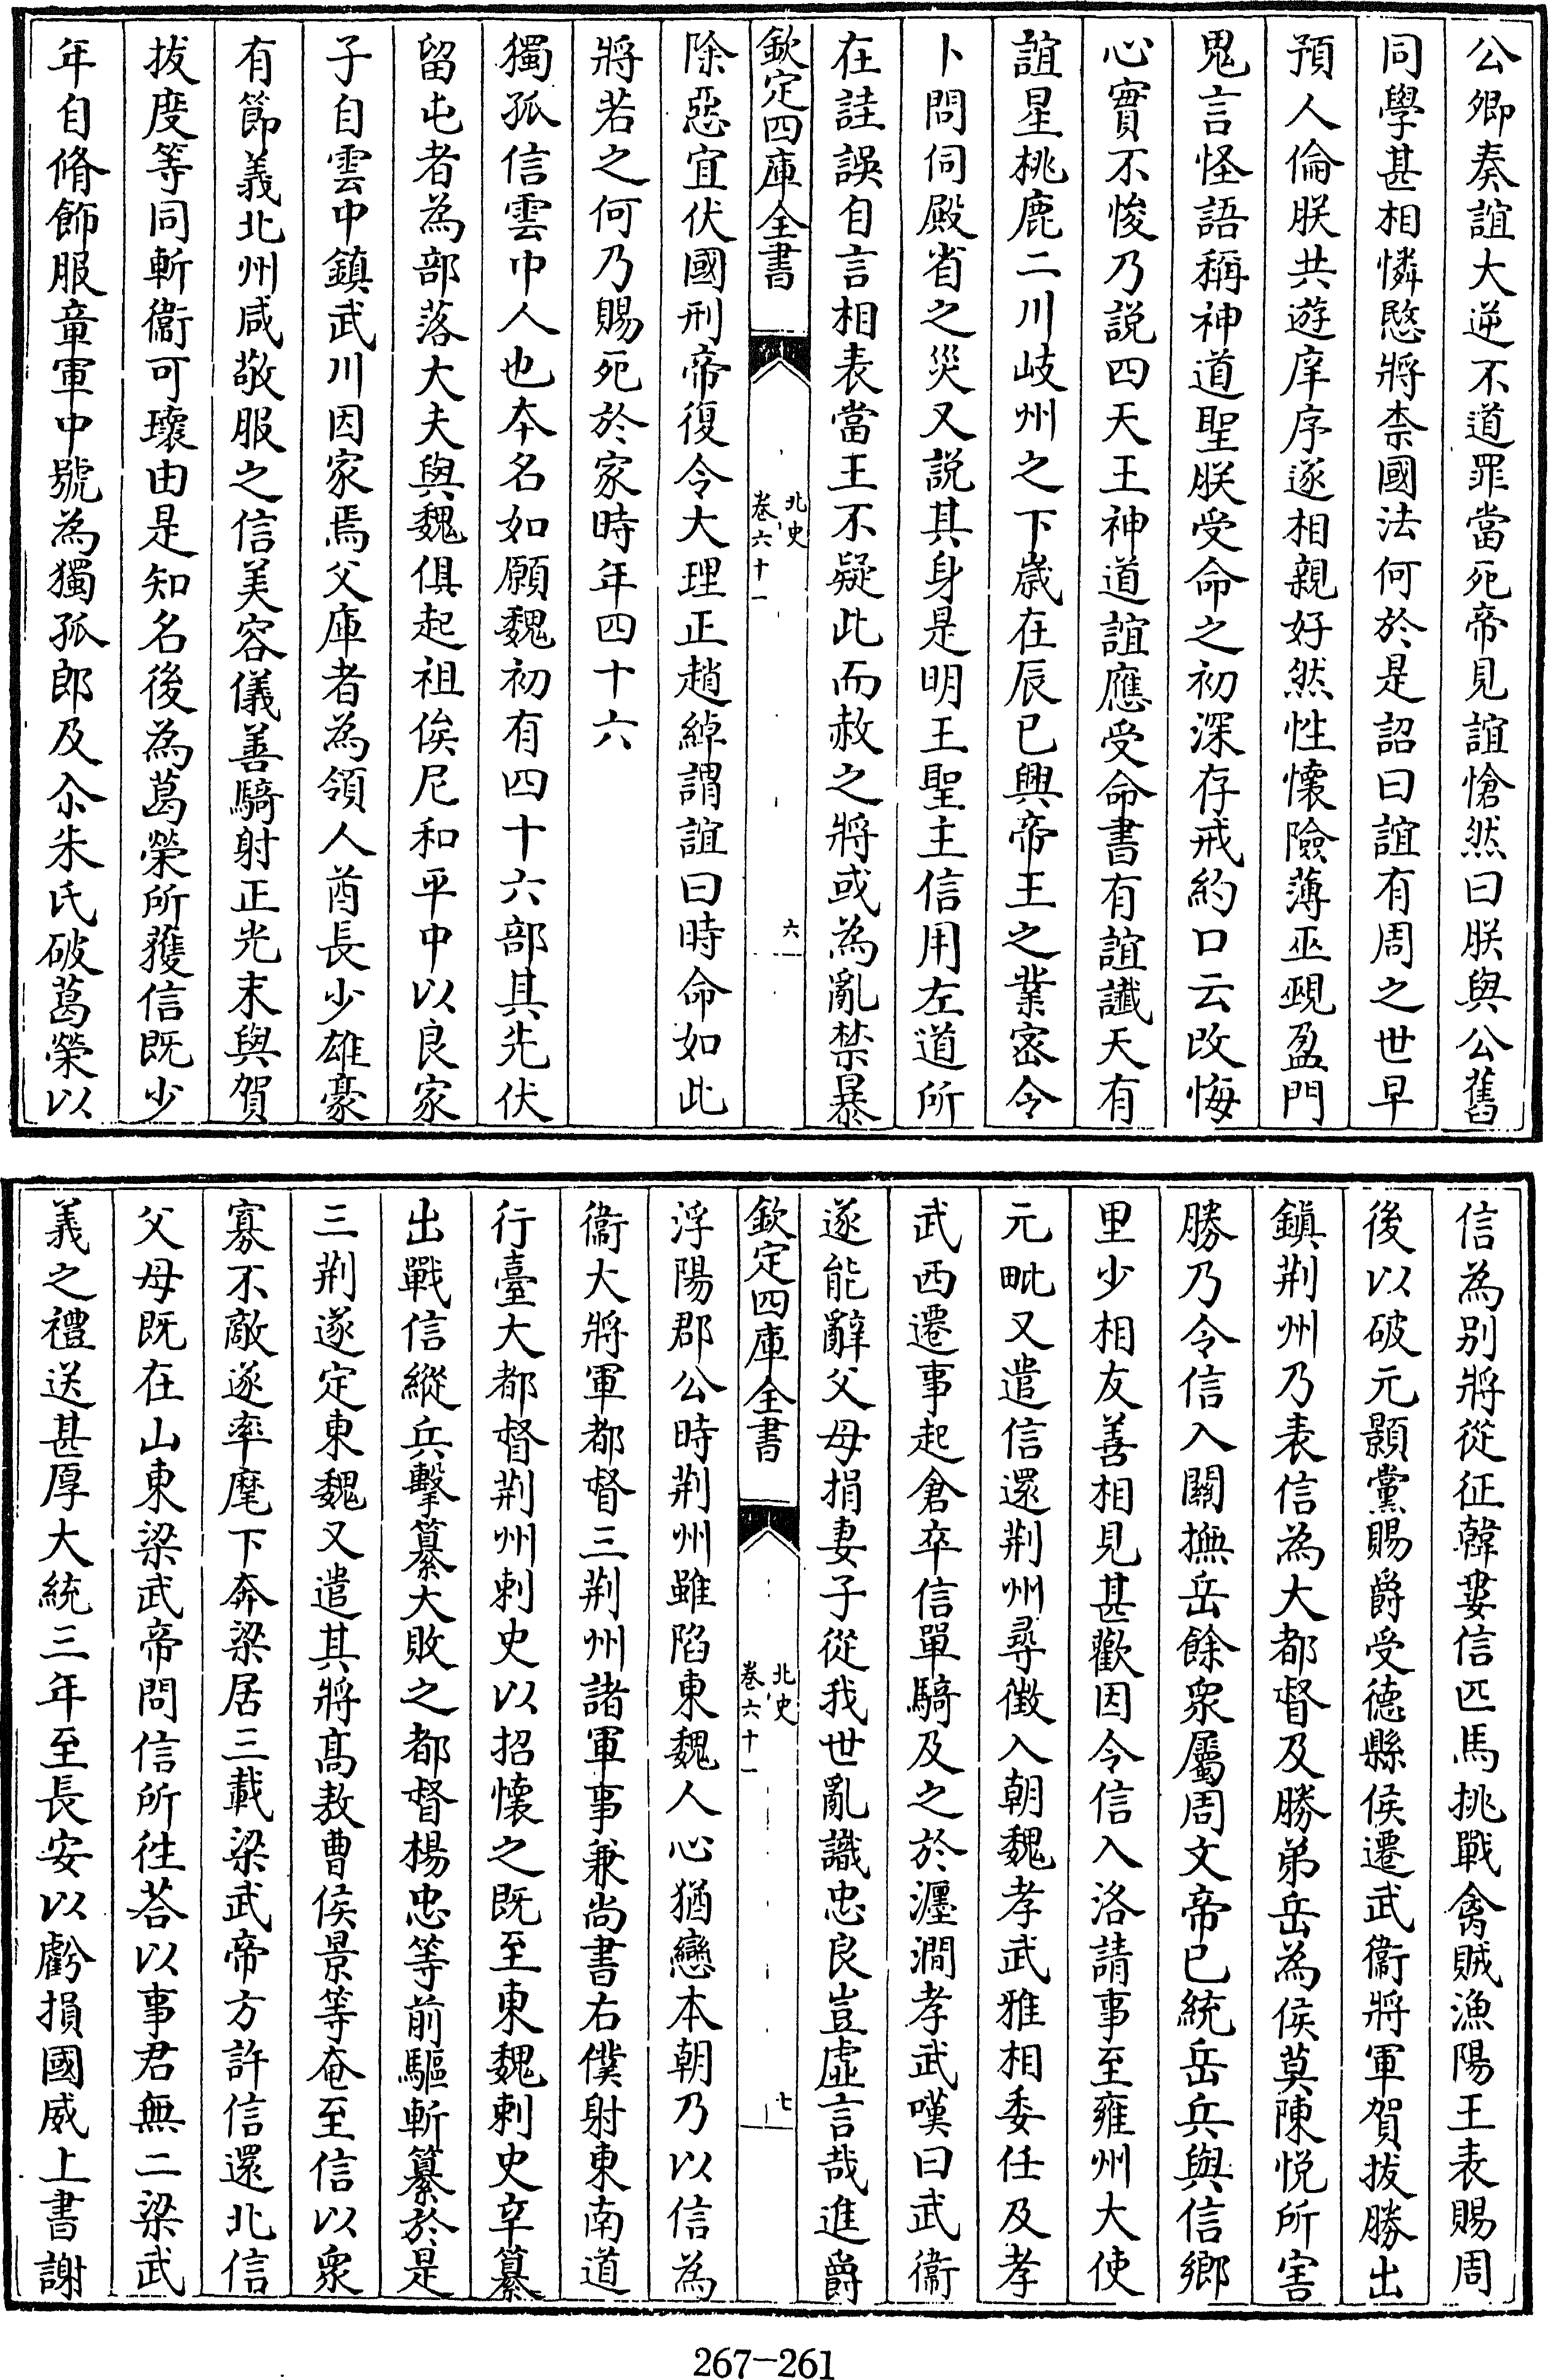 公卿奏誼大逆不道罪當死帝見誼愴然曰朕與公舊
同學甚相憐愍將柰國法何於是詔曰誼有周之世早
預人倫朕共遊庠序遂相親好然性懷險薄巫覡盈門
鬼言怪語稱神道聖朕受命之初深存戒約口云改悔
心實不悛乃説四天王神道誼應受命書有誼讖天有
誼星桃鹿二川岐州之下歳在辰巳興帝王之業宻令
卜問伺殿省之災又説其身是明王聖主信用左道所
在詿誤自言相表當王不疑此而赦之將或為亂禁暴
欽定四庫全書
北史
卷六十一
六
除惡宜伏國刑帝復令大理正趙綽謂誼曰時命如此
將若之何乃賜死於家時年四十六
獨孤信雲中人也本名如願魏初有四十六部其先伏
留屯者為部落大夫與魏俱起祖俟尼和平中以良家
子自雲中鎮武川因家焉父庫者為領人酋長少雄豪
有節義北州咸敬服之信美容儀善騎射正光末與賀
拔度等同斬衞可瓌由是知名後為葛榮所獲信既少
年自脩飾服章軍中號為獨孤郎及尒朱氏破葛榮以
信為別將從征韓婁信匹馬挑戰禽賊漁陽王表賜周
後以破元顥黨賜爵受德縣侯遷武衞將軍賀拔勝出
鎮荆州乃表信為大都督及勝弟岳為侯莫陳悦所害
勝乃令信入闗撫岳餘衆屬周文帝已統岳兵與信鄉
里少相友善相見甚歡因令信入洛請事至雍州大使
元毗又遣信還荆州尋徵入朝魏孝武雅相委任及孝
武西遷事起倉卒信單騎及之於瀍澗孝武嘆曰武衞
遂能辭父母捐妻子從我世亂識忠良豈虛言哉進爵
欽定四庫全書
北史
卷六十一
七
浮陽郡公時荆州雖陷東魏人心猶戀本朝乃以信為
衞大將軍都督三荆州諸軍事兼尚書右僕射東南道
行臺大都督荆州刺史以招懐之既至東魏刺史辛纂
出戰信縱兵擊纂大敗之都督楊忠等前驅斬纂於是
三荆遂定東魏又遣其將髙敖曹侯景等奄至信以衆
寡不敵遂率麾下奔梁居三載梁武帝方許信還北信
父母既在山東梁武帝問信所往荅以事君無二梁武
義之禮送甚厚大統三年至長安以虧損國威上書謝
267-261